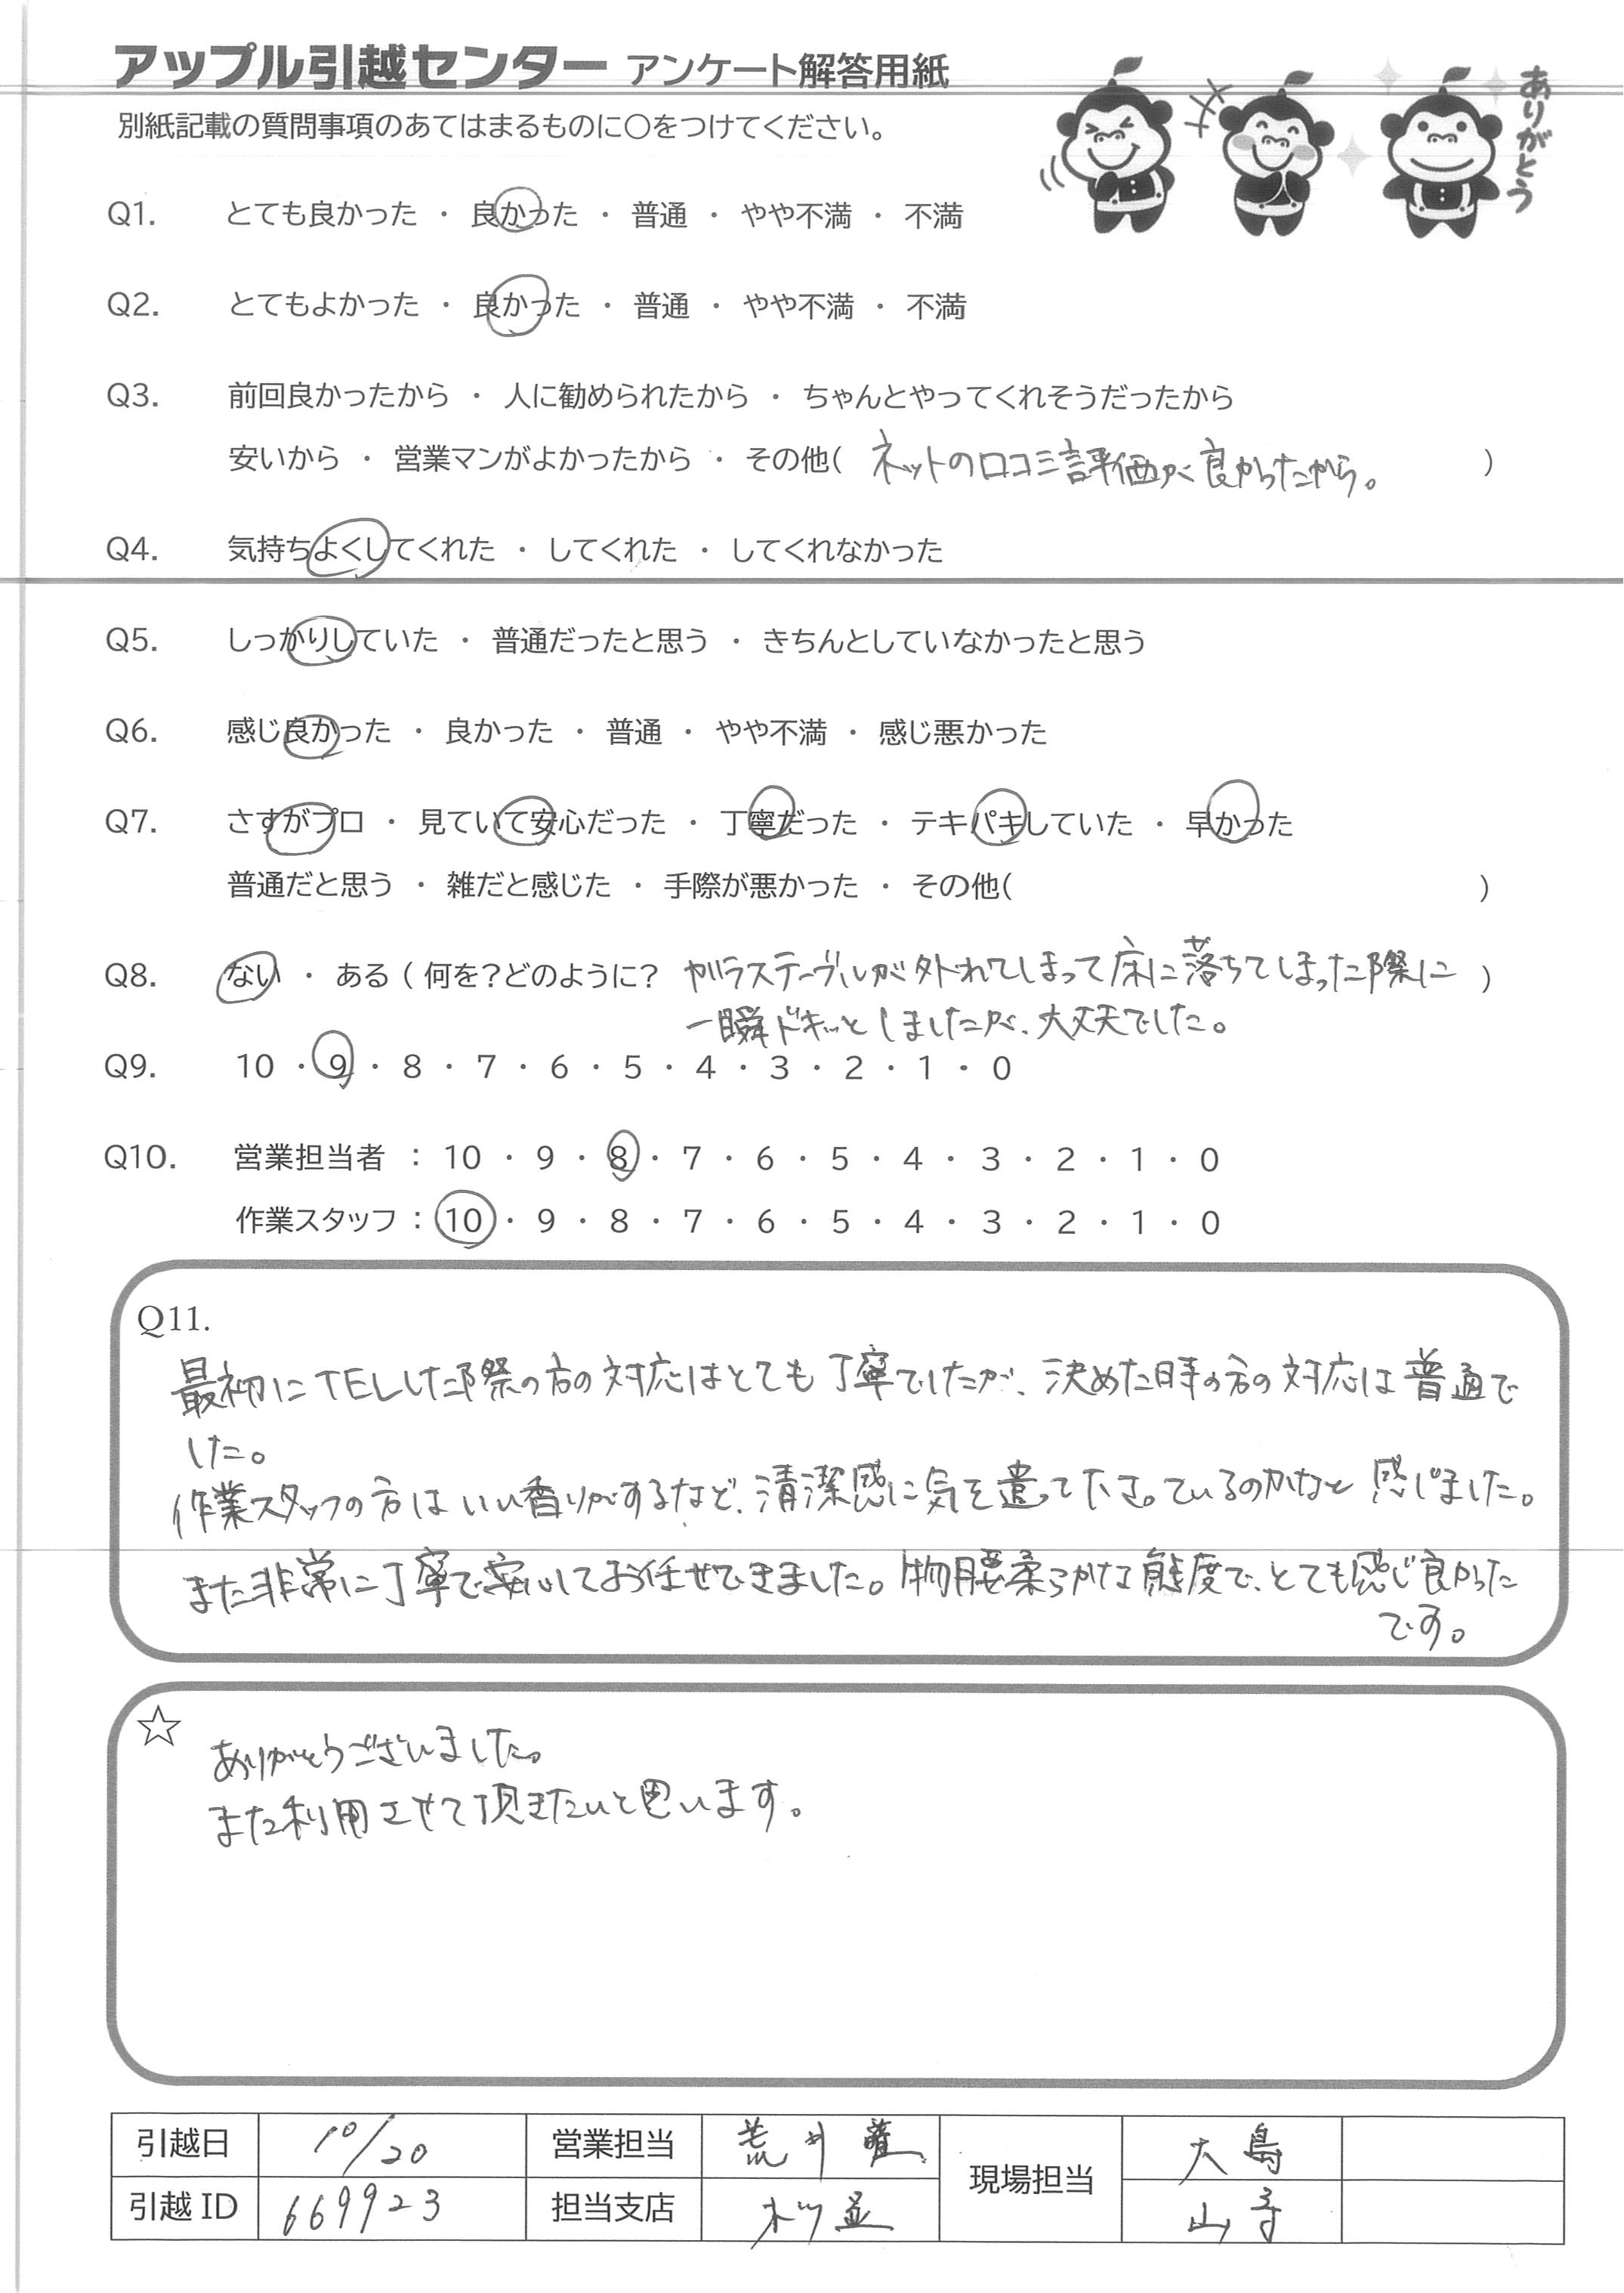 アップル引越センター アンケート解答用紙
別紙記載の質問事項のあてはまるものに〇をつけてください。
ありがとう
Q1. とても良かった ・ 良かった ・ 普通 ・ やや不満 ・ 不満
Q2. とてもよかった ・ 良かった ・ 普通 ・ やや不満 ・ 不満
Q3. 前回良かったから ・ 人に勧められたから ・ ちゃんとやってくれそうだったから
安いから ・ 営業マンがよかったから ・ その他( ネットの口コミ評価が良かったから。 )
Q4. 気持ちよくしてくれた ・ してくれた ・ してくれなかった
Q5. しっかりしていた ・ 普通だったと思う ・ きちんとしていなかったと思う
Q6. 感じ良かった ・ 良かった ・ 普通 ・ やや不満 ・ 感じ悪かった
Q7. さすがプロ ・ 見ていて安心だった ・ 丁寧だった ・ テキパキしていた ・ 早かった
普通だと思う ・ 雑だと感じた ・ 手際が悪かった ・ その他( )
Q8. ない ・ ある ( 何を？どのように？ ガラステーブルが外れてしまって床に落ちてしまった際に )
一瞬ドキッとしましたが、大丈夫でした。
Q9. 10 ・ 9 ・ 8 ・ 7 ・ 6 ・ 5 ・ 4 ・ 3 ・ 2 ・ 1 ・ 0
Q10. 営業担当者 ： 10 ・ 9 ・ 8 ・ 7 ・ 6 ・ 5 ・ 4 ・ 3 ・ 2 ・ 1 ・ 0
作業スタッフ ： 10 ・ 9 ・ 8 ・ 7 ・ 6 ・ 5 ・ 4 ・ 3 ・ 2 ・ 1 ・ 0
Q11.
最初にTELした際の方の対応はとても丁寧でしたが、決めた時の方の対応は普通で
した。
作業スタッフの方はいい香りがするなど、清潔感に気を遣って下さっているのかなと感じました。
また非常に丁寧で安心してお任せできました。物腰柔らかな態度で、とても感じ良かった
です。
☆
ありがとうございました。
また利用させて頂きたいと思います。
引越日 10/20 営業担当 荒井 現場担当 大島
引越ID 669923 担当支店 山寺